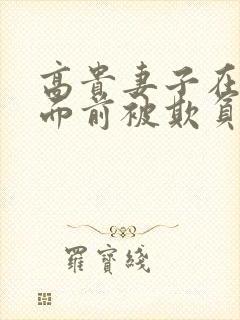 高貴妻子在
面前被欺負
羅寶綫